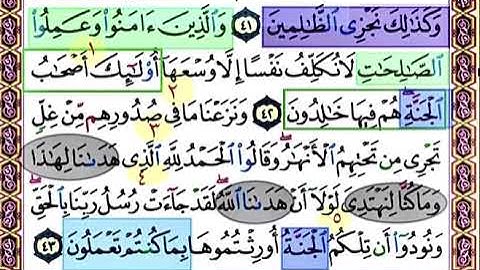 وَكَذَٰلِكَ نَجْزِى ٱلظَّـٰلِمِينَ ٤١ وَٱلَّذِينَ ءَامَنُوا۟ وَعَمِلُوا۟
ٱلصَّـٰلِحَـٰتِ لَا نُكَلِّفُ نَفْسًا إِلَّا وُسْعَهَآ أُو۟لَـٰٓئِكَ أَصْحَـٰبُ
ٱلْجَنَّةِ هُمْ فِيهَا خَـٰلِدُونَ ٤٢ وَنَزَعْنَا مَا فِى صُدُورِهِم مِّنْ غِلٍّ
تَجْرِى مِن تَحْتِهِمُ ٱلْأَنْهَـٰرُ وَقَالُوا۟ ٱلْحَمْدُ لِلَّهِ ٱلَّذِى هَدَىٰنَا لِهَـٰذَا
وَمَا كُنَّا لِنَهْتَدِىَ لَوْلَآ أَنْ هَدَىٰنَا ٱللَّهُ لَقَدْ جَآءَتْ رُسُلُ رَبِّنَا بِٱلْحَقِّ
وَنُودُوٓا۟ أَن تِلْكُمُ ٱلْجَنَّةُ أُورِثْتُمُوهَا بِمَا كُنتُمْ تَعْمَلُونَ ٤٣
١
٢
٣
٤
٥